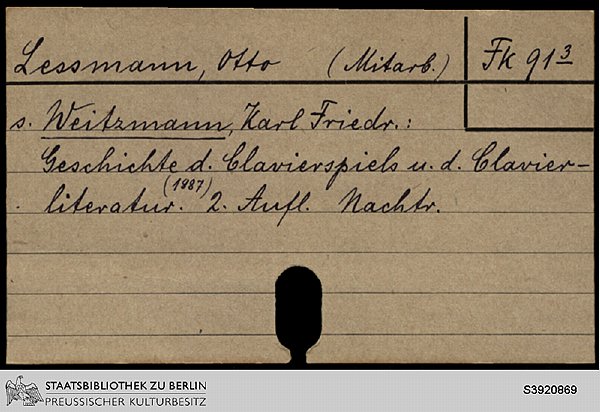 Lessmann, Otto (Mitarb.) Fk 91³
s. Weitzmann, Karl Friedr.:
Geschichte d. Clavierspiels u. d. Clavier-
literatur. (1987) 2. Aufl. Nachtr.
STAATSBIBLIOTHEK ZU BERLIN
PREUSSISCHER KULTURBESITZ
S3920869